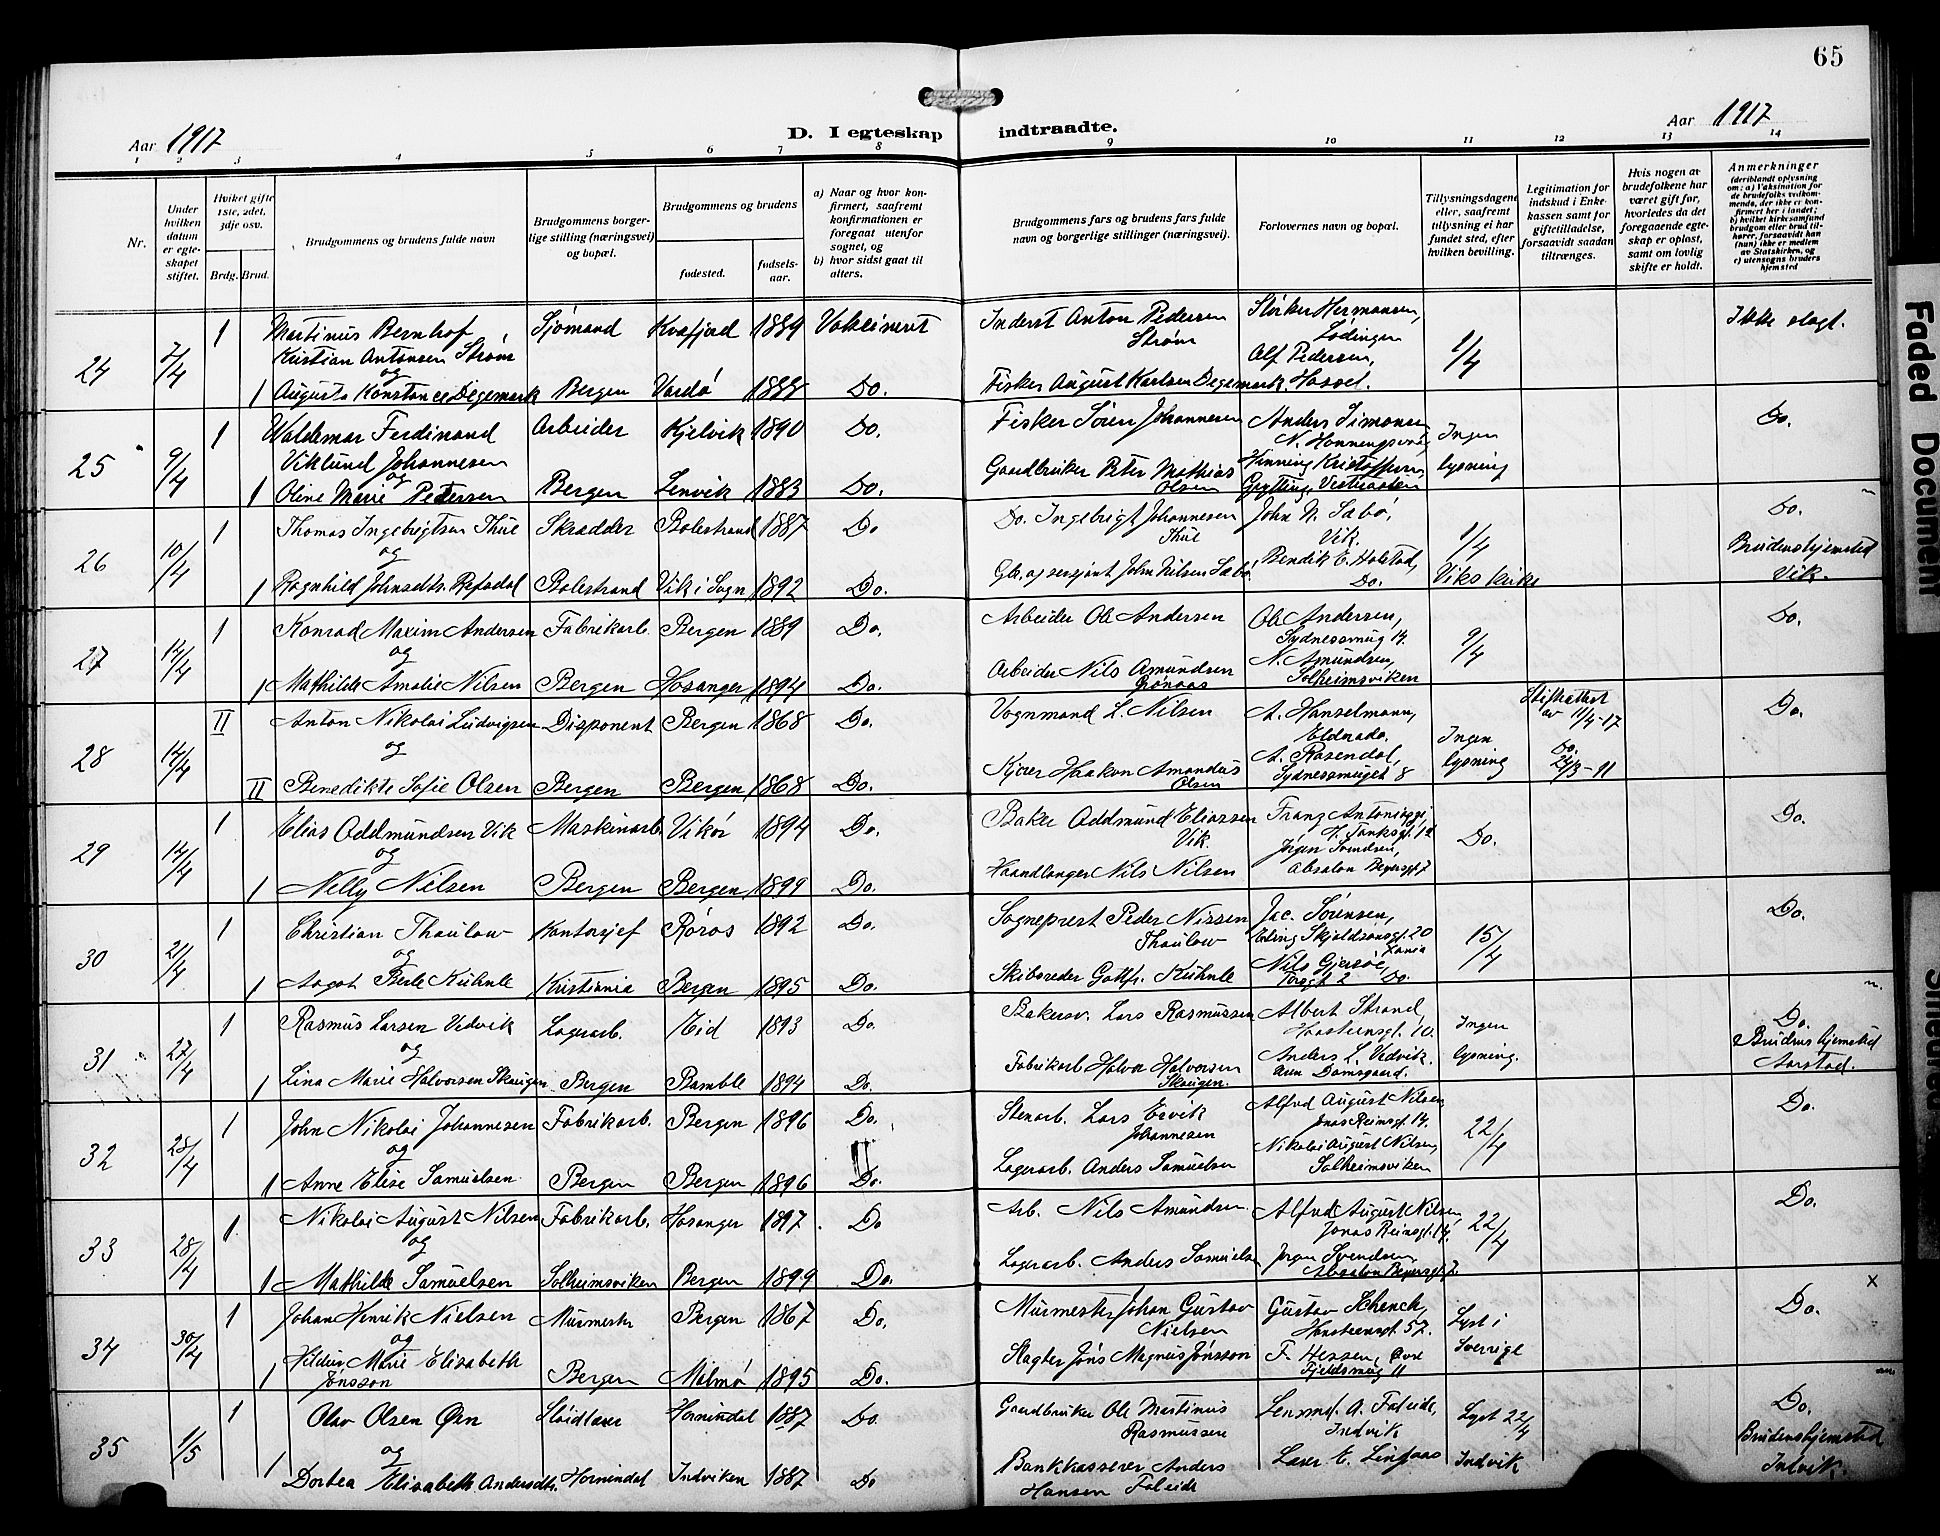 65
Aar 1917
D. I egteskap indtraadte.
Aar 1917
1 2 3 4 5 6 7 8 9 10 11 12 13 14
Nr.
Under hvilken datum er egteskapet stiftet.
Hvilket gifte 1ste, 2det, 3dje osv.
Brdg. Brud.
Brudgommens og brudens fulde navn
Brudgommens borgerlige stilling (næringsvei) og bopæl.
Brudgommens og brudens
fødested.
fødselsaar.
a) Naar og hvor konfirmert, saafremt konfirmationen er foregaat utenfor sognet, og
b) hvor sidst gaat til alters.
Brudgommens fars og brudens fars fulde navn og borgerlige stillinger (næringsvei).
Forlovernes navn og bopæl.
Tillysningsdagene eller, saafremt tillysning ei har fundet sted, efter hvilken bevilling.
Legitimation for indskud i Enkekassen samt for giftetilladelse, forsaavidt saadan tiltrænges.
Hvis nogen av brudefolkene har været gift før, hvorledes da det foregaaende egteskap er opløst, samt om lovlig skifte er holdt.
Anmerkninger
(deriblandt oplysning om: a) Vaksination for de brudefolks vedkommende, der ikke er konfirmert her i landet; b) hvilket kirkesamfund brudgom eller brud tilhører, forsaavidt han (hun) ikke er medlem av Statskirken, og c) utensogns bruders hjemsted
24 7/4 1 Martinus Bernhof Sjømand Kvæfjord 1889 Vaksineret Inderst Anton Pedersen Strøm Størker Hermansen, Lødingen 1/4 Ikke slegt.
Kristian Antonsen Strøm
og
1 Augusta Konstance Degemark Bergen Vardø 1888 Do. Fisker August Karlsen Degemark Alf Pedersen, Hassel.
25 9/4 1 Waldemar Ferdinand Arbeider Kjelvik 1890 Do. Fisker Søren Johannesen Anders Simonsen N. Honningsvaag Ingen lysning Do.
Viklund Johannesen
og
1 Oline Marie Petersen Bergen Lenvik 1883 Do. Gaardbruker Peter Mathias Olsen Henning Kristoffersen, Grytting, Vestraalen
26 10/4 1 Thomas Ingebrigtsen Thue Skrædder Balestrand 1887 Do Do. Ingebrigt Johannesen Thue John N. Sæbø, Vik. 1/4 Viks kirke Do.
og
1 Ragnhild Johnsdtr. Refsdal Balestrand Vik i Sogn 1892 Do. Gbr. og sersjant John Nilsen Sæbø Bendik E. Holstad, Do. Brudens hjemsted Vik.
27 14/4 1 Konrad Maxim Andersen Fabrikarb. Bergen 1889 Do. Arbeider Ole Andersen Ole Andersen, Sydnessmug 14. 9/4 Do.
og
1 Mathilde Amalie Nilsen Bergen Hosanger 1894 Do. Arbeider Nils Amundsen Grønaas N. Amundsen, Solheimsviken
28 14/4 II Anton Nikolai Ludvigsen Disponent Bergen 1868 Do. Vognmand L. Nilsen A. Hanselmann, Eldorado. Ingen lysning Skifteattest av 11/4-17 Do.
og
II Benedikte Sofie Olsen Bergen Bergen 1868 Do. Kjører Haakon Amandus Olsen A. Rosendal, Sydnessmuget 8 Do. 24/3-11
29 14/4 1 Elias Oddmundsen Vik Maskinarb. Vikør 1894 Do. Baker Oddmund Eliassen Vik. Franz Do. Do.
og
1 Nelly Nilsen Bergen Bergen 1899 Do. Haandlanger Nils Nilsen Jørgen Svendsen, Absalon Beyersgt. 7
30 21/4 1 Christian Thaulow Kontorsjef Røros 1892 Do. Sogneprest Peder Nissen Thaulow Jac. Sørensen, Erling Skjalgsønsgt. 20 15/4 Do.
og
1 Aagot Berle Kuhnle Kristiania Bergen 1895 Do. Skibsreder Gottfr. Kuhnle Nils Gjersøe, 2 Do.
31 27/4 1 Rasmus Larsen Vedvik Lagerarb. Eid 1893 Do. Bakersv. Lars Rasmussen Albert Strand, Hansteensgt. 10. Ingen lysning. Do.
og
1 Lina Marie Halvorsen Skaugen Bergen Bamble 1894 Do. Fabrikarb. Halvor Halvorsen Skaugen. Anders L. Vedvik. Damsgaard. Brudens hjemsted Aarstad.
32 28/4 1 John Nikolai Johannesen Fabrikarb. Bergen 1896 Do. Stenarb. Lars Ervik Johannesen Alfred August Nilsen, Jonas Reinsgt. 14. 22/4 Do.
og
1 Anne Elise Samuelsen Bergen Bergen 1896 Do. Lagerarb. Anders Samuelsen Nikolai August Nilsen, Solheimsviken
33 28/4 1 Nikolai August Nilsen Fabrikarb. Hosanger 1897 Do Arb. Nils Amundsen. Alfred August Nilsen, Jonas Reinsgt. 14. 22/4 Do.
og
1 Mathilde Samuelsen Solheimsviken Bergen 1899 Do. Lagerarb. Anders Samuelsen Jørgen Svendsen, Absalon Beyersgt. 7.
34 30/4 1 Johan Henrik Nielsen Murmester Bergen 1867 Do. Murmester Johan Gustav Nielsen Gustav Schenck, Hansteensgt. 57. Lyst i Sverige Do. x
og
1 Hildur Marie Elisabeth Jønsson Bergen Malmø 1895 Do. Slagter Jøns Magnus Jønsson F. Hessen, Øvre Fjeldsmug 11
35 1/5 1 Olav Olsen Øen Sløidlærer Hornindal 1887 Do. Gaardbruker Ole Martinus Rasmussen Lensmd. A. Faleide, Indvik Lyst 22/4 Indvik Do.
og
1 Dortea Elisabeth Andersdtr. Hornindal Indviken 1887 Do Bankkasserer Anders Hansen Faleide Lærer E. Brudens hjemsted Indvik.
Faded Document